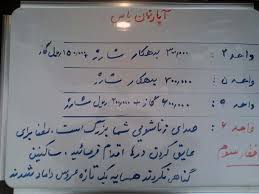 آپارتمان یاس
واحد ۲: ۳۰/۰۰۰ بدهکار شارژ + ۱۵۰/۰۰۰ ریال گاز
واحد ۵: ۲۰۰/۰۰۰ بدهکار شارژ
واحد ۹: ۶۰۰/۰۰۰ گاز + ۲۰۰/۰۰۰ ریال شارژ
واحد ۶: صدای زناشویی شما بزرگ است. لطفا برای
عایق کردن درها اقدام فرمائید. ساکنین
گناهی نکردند همسایه یک تازه عروس داماد شدند
اخطار سوم